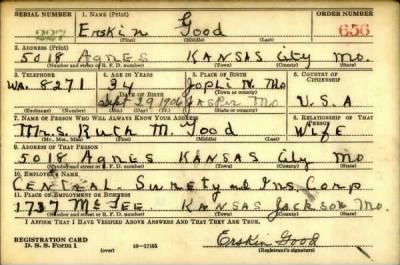 SERIAL NUMBER 1. NAME (Print) ORDER NUMBER
227 Erskin Good 656
(First) (Middle) (Last)
2. ADDRESS (Print)
5018 Agnes Kansas City Mo.
(Number and street or R. F. D. number) (Town) (County) (State)
3. TELEPHONE 4. AGE IN YEARS 5. PLACE OF BIRTH 6. COUNTRY OF CITIZENSHIP
Wa. 8271 34 Joplin Mo
DATE OF BIRTH (Town or county)
Sept 29 1906 Jasper Mo U.S.A
(Exchange) (Number) (Mo.) (Day) (Yr.) (State or country)
7. NAME OF PERSON WHO WILL ALWAYS KNOW YOUR ADDRESS 8. RELATIONSHIP OF THAT PERSON
Mrs. Ruth M. Good Wife
(Mr., Mrs., Miss) (First) (Middle) (Last)
9. ADDRESS OF THAT PERSON
5018 Agnes Kansas City Mo
(Number and street or R. F. D. number) (Town) (County) (State)
10. EMPLOYER'S NAME
Central Surety and Ins. Comp
11. PLACE OF EMPLOYMENT OR BUSINESS
1737 McGee. Kansas Jackson Mo.
(Number and street or R. F. D. number) (Town) (County) (State)
I AFFIRM THAT I HAVE VERIFIED ABOVE ANSWERS AND THAT THEY ARE TRUE.
REGISTRATION CARD
D. S. S. Form 1 (over) 16—17105 Erskin Good
(Registrant's signature)